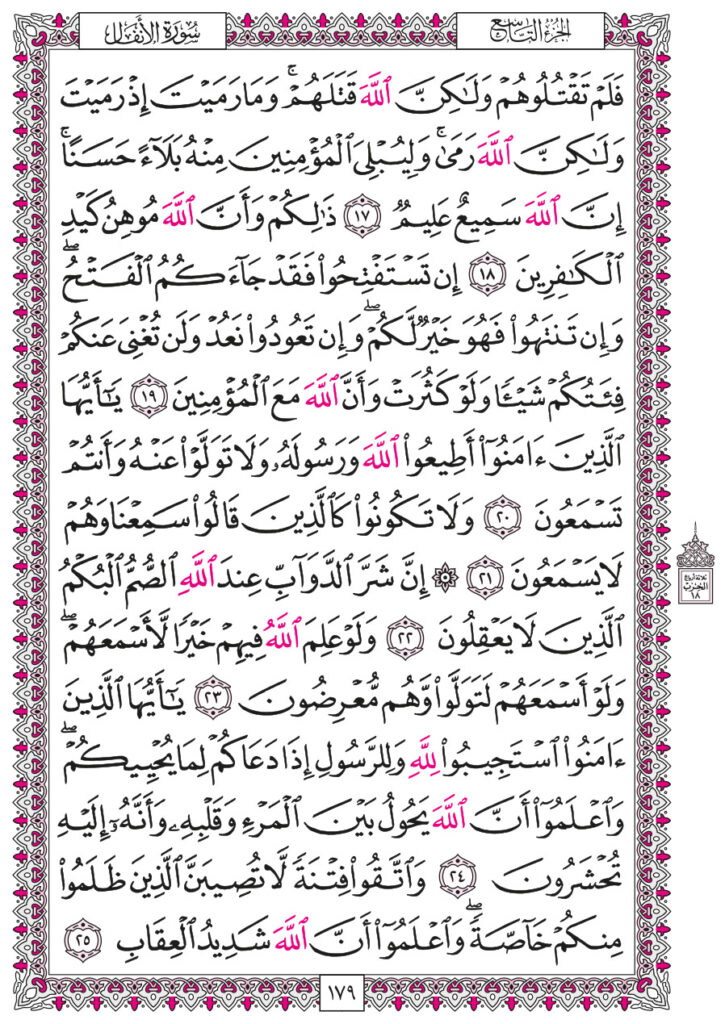 الجزء التاسع
سورة الأنفال
فَلَمْ تَقْتُلُوهُمْ وَلَٰكِنَّ ٱللَّهَ قَتَلَهُمْۚ وَمَا رَمَيْتَ إِذْ رَمَيْتَ
وَلَٰكِنَّ ٱللَّهَ رَمَىٰۚ وَلِيُبْلِىَ ٱلْمُؤْمِنِينَ مِنْهُ بَلَآءً حَسَنًاۚ
إِنَّ ٱللَّهَ سَمِيعٌ عَلِيمٌ ١٧ ذَٰلِكُمْ وَأَنَّ ٱللَّهَ مُوهِنُ كَيْدِ
ٱلْكَٰفِرِينَ ١٨ إِن تَسْتَفْتِحُوا۟ فَقَدْ جَآءَكُمُ ٱلْفَتْحُۖ
وَإِن تَنتَهُوا۟ فَهُوَ خَيْرٌ لَّكُمْۖ وَإِن تَعُودُوا۟ نَعُدْ وَلَن تُغْنِىَ عَنكُمْ
فِئَتُكُمْ شَيْـًٔا وَلَوْ كَثُرَتْ وَأَنَّ ٱللَّهَ مَعَ ٱلْمُؤْمِنِينَ ١٩ يَٰٓأَيُّهَا
ٱلَّذِينَ ءَامَنُوٓا۟ أَطِيعُوا۟ ٱللَّهَ وَرَسُولَهُۥ وَلَا تَوَلَّوْا۟ عَنْهُ وَأَنتُمْ
تَسْمَعُونَ ٢٠ وَلَا تَكُونُوا۟ كَٱلَّذِينَ قَالُوا۟ سَمِعْنَا وَهُمْ
لَا يَسْمَعُونَ ٢١ ۞ إِنَّ شَرَّ ٱلدَّوَآبِّ عِندَ ٱللَّهِ ٱلصُّمُّ ٱلْبُكْمُ
ٱلَّذِينَ لَا يَعْقِلُونَ ٢٢ وَلَوْ عَلِمَ ٱللَّهُ فِيهِمْ خَيْرًا لَّأَسْمَعَهُمْۖ
وَلَوْ أَسْمَعَهُمْ لَتَوَلَّوا۟ وَّهُم مُّعْرِضُونَ ٢٣ يَٰٓأَيُّهَا ٱلَّذِينَ
ءَامَنُوا۟ ٱسْتَجِيبُوا۟ لِلَّهِ وَلِلرَّسُولِ إِذَا دَعَاكُمْ لِمَا يُحْيِيكُمْۖ
وَٱعْلَمُوٓا۟ أَنَّ ٱللَّهَ يَحُولُ بَيْنَ ٱلْمَرْءِ وَقَلْبِهِۦ وَأَنَّهُۥٓ إِلَيْهِ
تُحْشَرُونَ ٢٤ وَٱتَّقُوا۟ فِتْنَةً لَّا تُصِيبَنَّ ٱلَّذِينَ ظَلَمُوا۟
مِنكُمْ خَآصَّةًۖ وَٱعْلَمُوٓا۟ أَنَّ ٱللَّهَ شَدِيدُ ٱلْعِقَابِ ٢٥
ثلاثة أرباع
الحزب
١٨
١٧٩